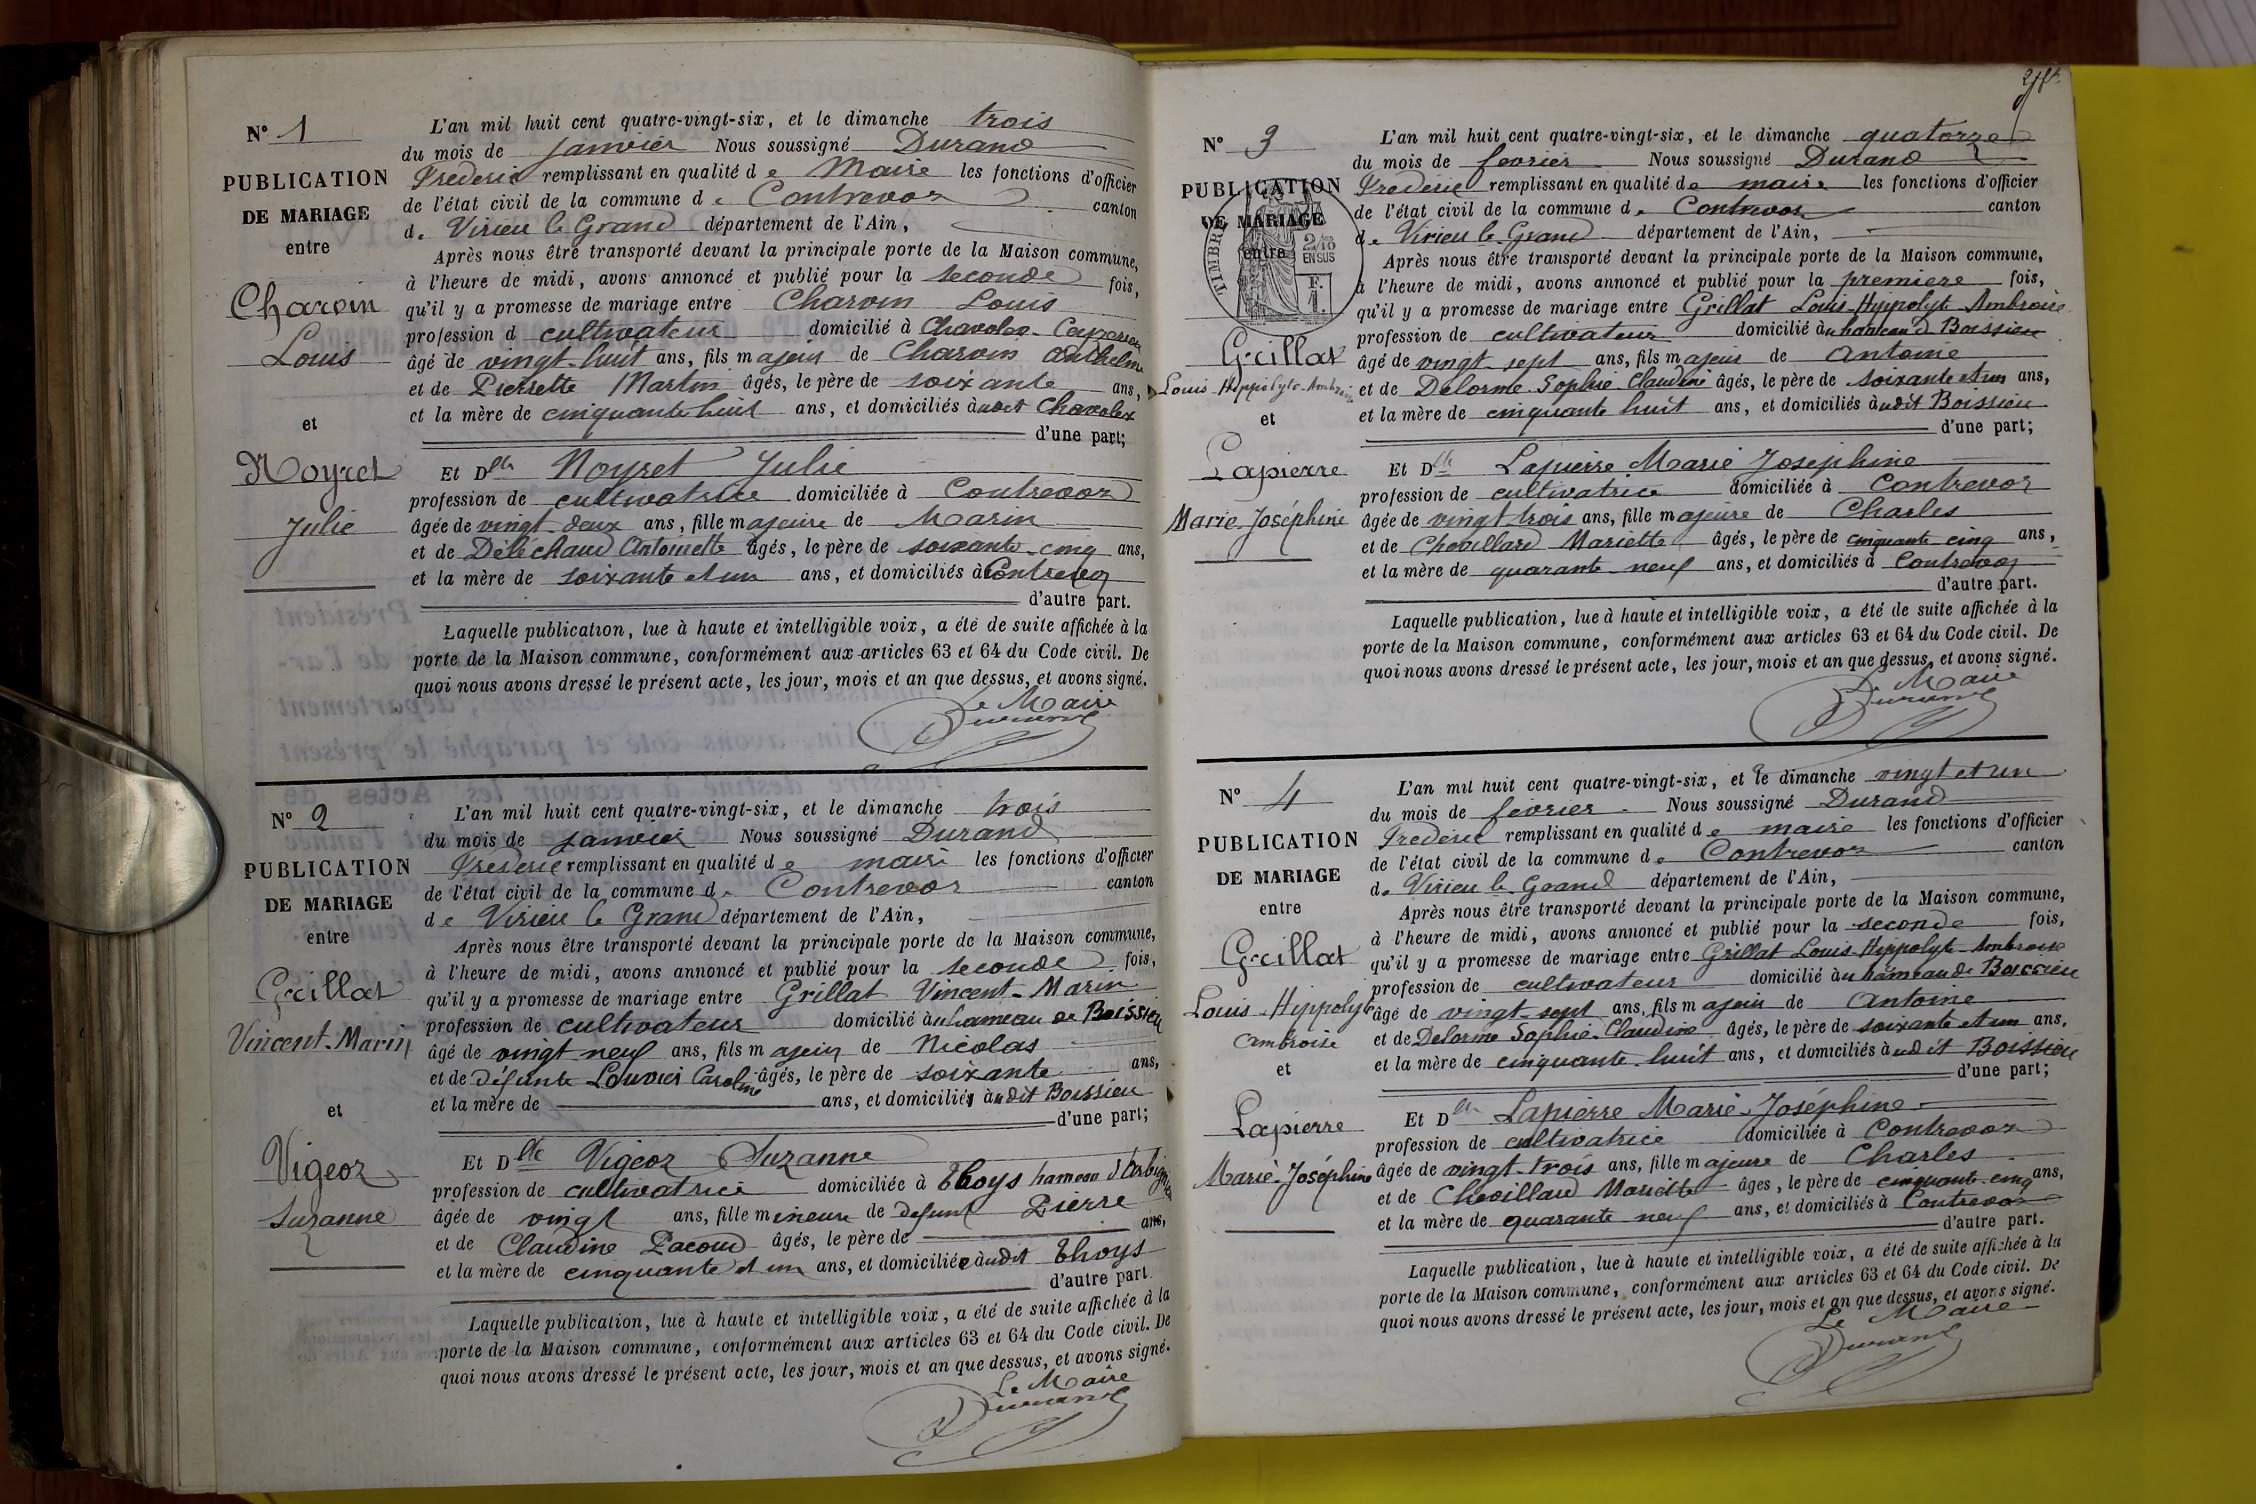 N° 1
PUBLICATION
DE MARIAGE
entre
Charvin
Louis
et
Noyret
Julie
L'an mil huit cent quatre-vingt-six, et le dimanche trois
du mois de janvier Nous soussigné Durand
Frederic remplissant en qualité de Maire les fonctions d'officier
de l'état civil de la commune de Contrevoz canton
de Virieu le Grand département de l'Ain,
Après nous être transporté devant la principale porte de la Maison commune,
à l'heure de midi, avons annoncé et publié pour la seconde fois,
qu'il y a promesse de mariage entre Charvin Louis
profession d cultivateur domicilié à Chavolex-Ceyzerieu
âgé de vingt-huit ans, fils majeur de Charvin Anthelme
et de Pierrette Martin âgés, le père de soixante ans,
et la mère de cinquante huit ans, et domiciliés àudit Chavolex
d'une part;
Et Dlle Noyret Julie
profession de cultivatrice domiciliée à Contrevoz
âgée de vingt-deux ans, fille majeure de Marin
et de Déléchaud Antoinette âgés, le père de soixante-cinq ans,
et la mère de soixante et un ans, et domiciliés à Contrevoz
d'autre part.
Laquelle publication, lue à haute et intelligible voix, a été de suite affichée à la
porte de la Maison commune, conformément aux articles 63 et 64 du Code civil. De
quoi nous avons dressé le présent acte, les jour, mois et an que dessus, et avons signé.
Le Maire
Durand
N° 2
PUBLICATION
DE MARIAGE
entre
Grillat
Vincent-Marin
et
Vigeoz
Suzanne
L'an mil huit cent quatre-vingt-six, et le dimanche trois
du mois de janvier Nous soussigné Durand
Frederic remplissant en qualité de maire les fonctions d'officier
de l'état civil de la commune de Contrevoz canton
de Virieu le Grand département de l'Ain,
Après nous être transporté devant la principale porte de la Maison commune,
à l'heure de midi, avons annoncé et publié pour la seconde fois,
qu'il y a promesse de mariage entre Grillat Vincent-Marin
profession de cultivateur domicilié àu hameau de Boissieu
âgé de vingt neuf ans, fils majeur de Nicolas
et de Défunte Louvier Caroline âgés, le père de soixante ans,
et la mère de ans, et domiciliés àudit Boissieu
d'une part;
Et Dlle Vigeoz Suzanne
profession de cultivatrice domiciliée à Thoys hameau d'Arbignieu
âgée de vingt ans, fille mineure de defunt Pierre
et de Claudine Pacoud âgés, le père de ans,
et la mère de cinquante et un ans, et domiciliée àudit Thoys
d'autre part.
Laquelle publication, lue à haute et intelligible voix, a été de suite affichée à la
porte de la Maison commune, conformément aux articles 63 et 64 du Code civil. De
quoi nous avons dressé le présent acte, les jour, mois et an que dessus, et avons signé.
Le Maire
Durand
N° 3
PUBLICATION
DE MARIAGE
entre
TIMBRE
2/10
EN SUS
F.
1.
Grillat
Louis-Hippolyte-Ambroise
et
Lapierre
Marie-Joséphine
L'an mil huit cent quatre-vingt-six, et le dimanche quatorze
du mois de fevrier Nous soussigné Durand
Frederic remplissant en qualité de maire les fonctions d'officier
de l'état civil de la commune de Contrevoz canton
de Virieu le Grand département de l'Ain,
Après nous être transporté devant la principale porte de la Maison commune,
à l'heure de midi, avons annoncé et publié pour la premiere fois,
qu'il y a promesse de mariage entre Grillat Louis-Hyppolyte Ambroise
profession de cultivateur domicilié àu hameau de Boissieu
âgé de vingt sept ans, fils majeur de Antoine
et de Delorme Sophie Claudine âgés, le père de soixante et un ans,
et la mère de cinquante huit ans, et domiciliés àudit Boissieu
d'une part;
Et Dlle Lapierre Marie Joséphine
profession de cultivatrice domiciliée à Contrevoz
âgée de vingt trois ans, fille majeure de Charles
et de Chevillard Mariette âgés, le père de cinquante cinq ans,
et la mère de quarante neuf ans, et domiciliés à Contrevoz
d'autre part.
Laquelle publication, lue à haute et intelligible voix, a été de suite affichée à la
porte de la Maison commune, conformément aux articles 63 et 64 du Code civil. De
quoi nous avons dressé le présent acte, les jour, mois et an que dessus, et avons signé.
Le Maire
Durand
N° 4
PUBLICATION
DE MARIAGE
entre
Grillat
Louis-Hippolyte
Ambroise
et
Lapierre
Marie-Joséphine
L'an mil huit cent quatre-vingt-six, et le dimanche vingt et un
du mois de fevrier Nous soussigné Durand
Frederic remplissant en qualité de maire les fonctions d'officier
de l'état civil de la commune de Contrevoz canton
de Virieu le Grand département de l'Ain,
Après nous être transporté devant la principale porte de la Maison commune,
à l'heure de midi, avons annoncé et publié pour la seconde fois,
qu'il y a promesse de mariage entre Grillat Louis-Hippolyte-Ambroise
profession de cultivateur domicilié àu hameau de Boissieu
âgé de vingt-sept ans, fils majeur de Antoine
et de Delorme Sophie-Claudine âgés, le père de soixante et un ans,
et la mère de cinquante-huit ans, et domiciliés àudit Boissieu
d'une part;
Et Dlle Lapierre Marie-Joséphine
profession de cultivatrice domiciliée à Contrevoz
âgée de vingt-trois ans, fille majeure de Charles
et de Chevillard Mariette âgés, le père de cinquante-cinq ans,
et la mère de quarante neuf ans, et domiciliés à Contrevoz
d'autre part.
Laquelle publication, lue à haute et intelligible voix, a été de suite affichée à la
porte de la Maison commune, conformément aux articles 63 et 64 du Code civil. De
quoi nous avons dressé le présent acte, les jour, mois et an que dessus, et avons signé.
Le Maire
Durand